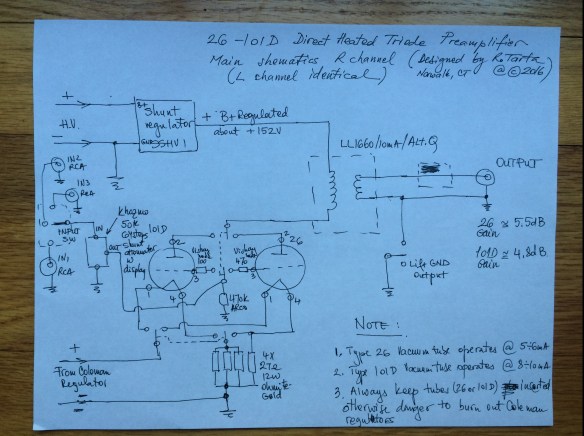 26-101D Direct Heated Triode Preamplifier
Main shematics R channel (Designed by R. Tarta
(L channel identical) Norwalk, CT @ © 2016)
+
H.V.
B+
Shunt
regulator
GND SSHV1
+ B+ Regulated
about +152V
LL1660/10mA/Alt.Q
OUTPUT
IN2
RCA
IN3
RCA
INPUT
SW
IN1
RCA
Khozmo
50K
Shunt
attenuator
w
display
IN
OUT
101D
26
2
2
3
3
1
4
1
4
100
470
470K
26 ≈ 5.5dB
Gain
101D ≈ 4.8dB
Gain
Lift GND
Output
+
From Coleman
Regulator
4X
27Ω
12W
ohmite
Gold
NOTE:
1. Type 26 Vacuum tube operates @ 5÷6mA
2. Type 101D Vacuum tube operates @ 8÷10mA
3. Always keep tubes (26 or 101D) inserted
otherwise danger to burn out Coleman
regulators